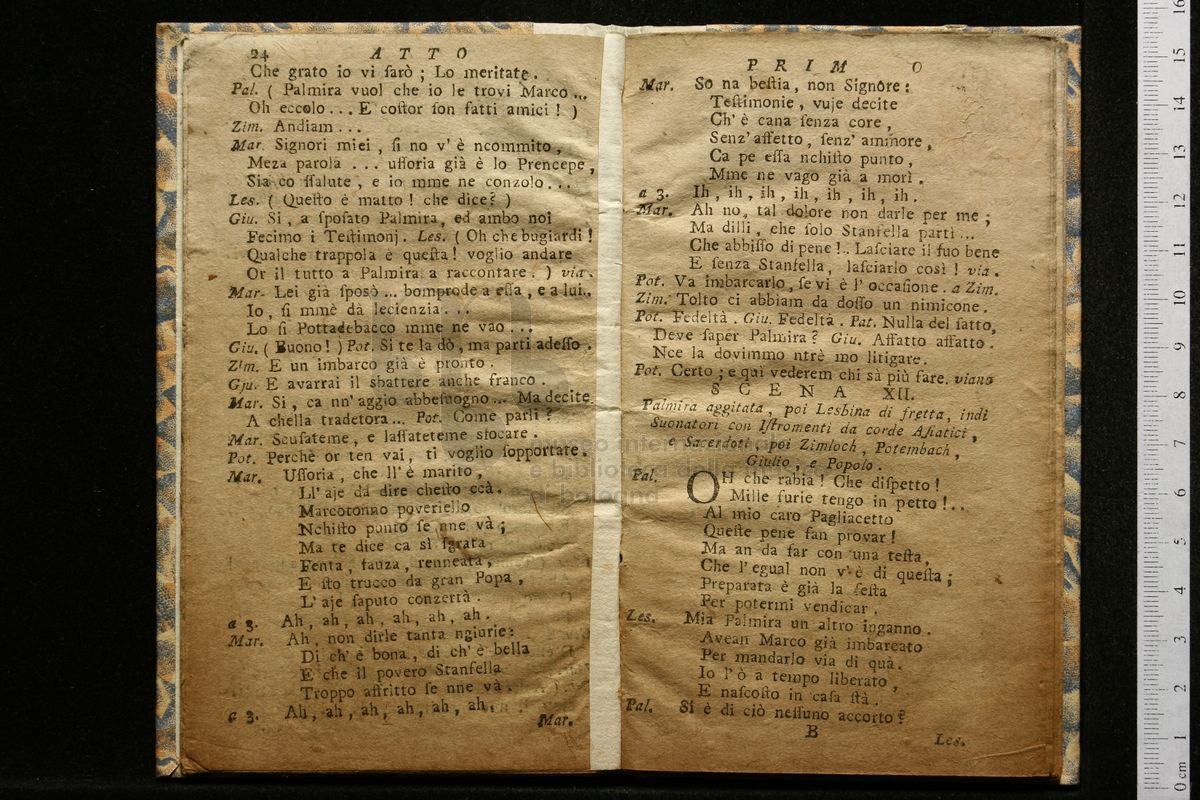 24 ATTO
Che grato io vi sarò ; Lo meritate.
Pal. ( Palmira vuol che io le trovi Marco ...
Oh eccolo ... E costor son fatti amici ! )
Zim. Andiam ...
Mar. Signori miei , si no v' è ncommito ,
Meza parola ... ussoria già è lo Prencepe,
Sia co ssalute , e io mme ne conzolo ...
Les. ( Questo è matto ! che dice? )
Giu. Si , a sposato Palmira, ed ambo noi
Fecimo i Testimonj. Les. ( Oh che bugiardi !
Qualche trappola è questa ! voglio andare
Or il tutto a Palmira a raccontare. ) via.
Mar. Lei già sposò ... bomprode a essa , e a lui..
Io , si mmè dà lecienzia ...
Lo si Pottadebacco mme ne vao ...
Giu. ( Buono! ) Pot. Si te la dò , ma parti adesso .
Zim. E un imbarco già è pronto .
Gju. E avarrai il sbattere anche franco .
Mar. Si , ca nn' aggio abbesuogno ... Ma decite
A chella tradetora ... Pot. Come parli ?
Mar. Scusateme , e lassateteme sfocare .
Pot. Perchè or ten vai , ti voglio sopportate.
Mar. Ussoria , che ll' è marito ,
Ll' aje da dire chesto ccà .
Marcotonno poveriello
Nchisto punto se nne và ;
Ma te dice ca sì sgrata
Fenta , fauza , renneata ,
E sto trucco da gran Popa ,
L' aje saputo conzertà .
a 3. Ah , ah , ah , ah , ah , ah .
Mar. Ah , non dirle tanta ngiurie:
Di ch' è bona , di ch' è bella
E che il povero Stansella
Troppo affritto se nne và .
a 3. Ah , ah , ah , ah , ah , ah.
Mar.
PRIMO
Mar. So na bestia , non Signore :
Testimonie , vuje decite
Ch' è cana senza core ,
Senz' affetto , senz' ammore ,
Ca pe essa nchisto punto ,
Mme ne vago già a morì .
a 3. Ih , ih , ih , ih , ih , ih , ih .
Mar. Ah no , tal dolore non darle per me ;
Ma dilli , che solo Stansella parti ...
Che abbisso di pene !.. Lasciare il suo bene
E senza Stansella , lasciarlo così ! via .
Pot. Va imbarcarlo , se vi è l' occasione . a Zim.
Zim. Tolto ci abbiam da dosso un nimicone.
Pot. Fedeltà . Giu. Fedeltà . Pat. Nulla del fatto,
Deve saper Palmira ? Giu. Affatto affatto .
Nce la dovimmo ntrè mo litigare.
Pot. Certo ; e qui vederem chi sà più fare. viano
SCENA XII.
Palmira aggitata , poi Lesbina di fretta , indi
Suonatori con Istromenti da corde Asiatici ,
e Sacerdoti , poi Zimloch , Potembach ,
Giulio , e Popolo .
Pal. OH che rabia ! Che dispetto !
Mille furie tengo in petto !..
Al mio caro Pagliacetto
Queste pene fan provar !
Ma an da far con una testa ,
Che l' egual non v' è di questa ;
Preparata è già la festa
Per potermi vendicar .
Les. Mia Palmira un altro inganno .
Avean Marco già imbarcato
Per mandarlo via di quà .
Io l' ò a tempo liberato ,
E nascosto in casa stà .
Pal. Si è di ciò nessuno accorto ?
B
Les.